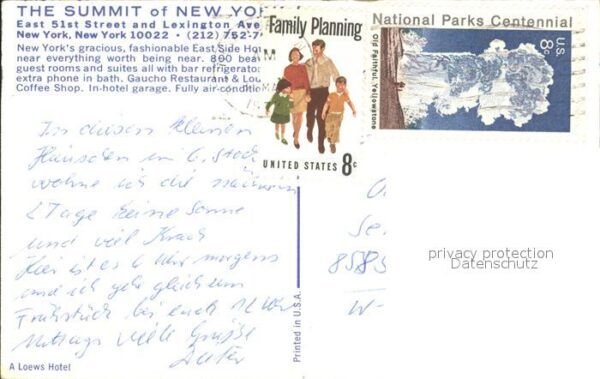 THE SUMMIT of NEW YO
East 51st Street and Lexington Ave
New York, New York 10022 • (212) 752-7
New York's gracious, fashionable East Side Ho
near everything worth being near. 800 bea
guest rooms and suites all with bar refrigerato
extra phone in bath. Gaucho Restaurant & Lou
Coffee Shop. In-hotel garage. Fully air-conditio
Family Planning
UNITED STATES 8c
National Parks Centennial
Old Faithful, Yellowstone
U.S. 8c
In diesem kleinen
Häuschen im 6. Stock
wohne ich die
2 Tage keine Sonne
und viel Krach
Hier ist es 6 Uhr morgens
und ich geh gleich zum
Frühstück bei euch 12 Uhr
Mittags viele Grüße
Dieter
858
W-
privacy protection
Datenschutz
Printed in U.S.A.
A Loews Hotel